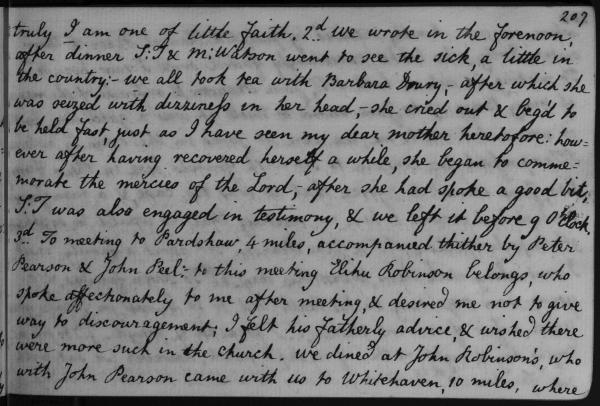 207
truly I am one of little faith. 2.d we wrote in the forenoon,
after dinner S:T & M: Watson went to see the sick, a little in
the country;- we all took tea with Barbara Drury,- after which she
was seized with dizziness in her head,- she cried out & beg'd to
be held fast, just as I have seen my dear mother heretofore: how=
ever after having recovered herself a while, she began to comme=
morate the mercies of the Lord,- after she had spoke a good bit,
S.T was also engaged in testimony, & we left it before 9 O'Clock.
3.d To meeting to Pardshaw, 4 miles, accompanied thither by Peter
Pearson & John Peel:- to this meeting Elihu Robinson belongs, who
spoke affectionately to me after meeting, & desired me not to give
way to discouragement; I felt his fatherly advice, & wished there
were more such in the church. We dined at John Robinson's, who
with John Pearson came with us to Whitehaven, 10 miles, where